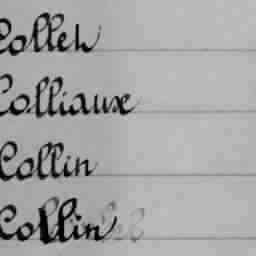 Colleh
Colliaux
Collin
Collin